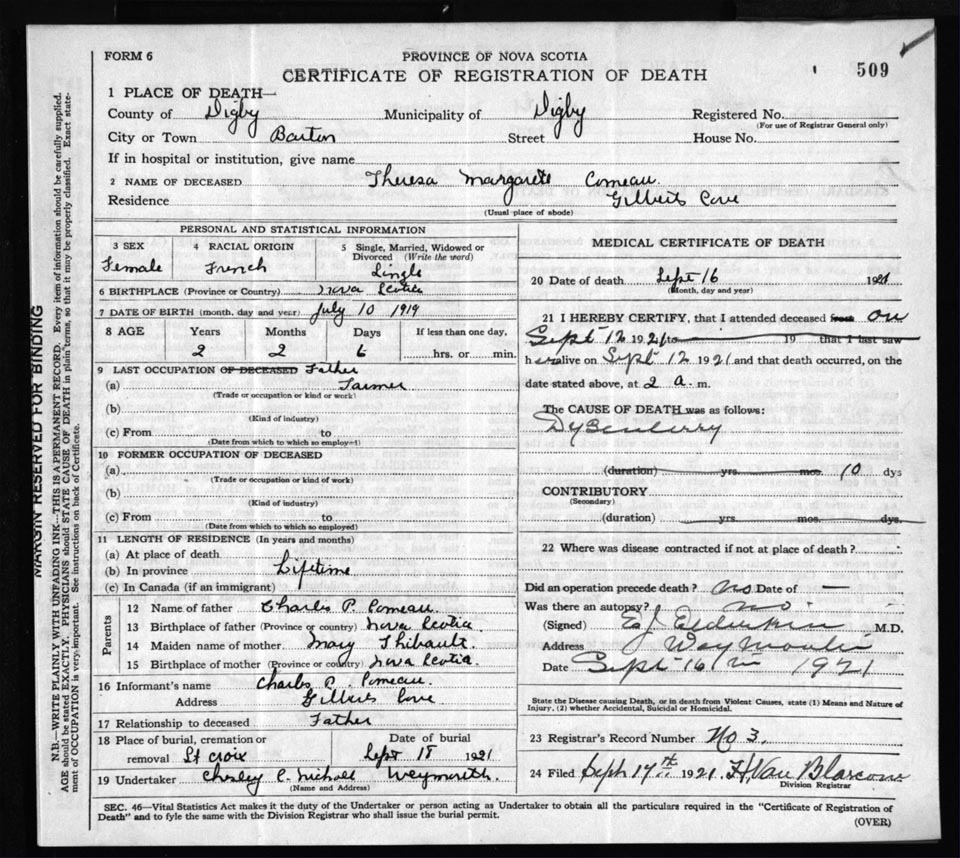 FORM 6
PROVINCE OF NOVA SCOTIA
CERTIFICATE OF REGISTRATION OF DEATH
509
1 PLACE OF DEATH—
County of Digby Municipality of Digby Registered No.
(For use of Registrar General only)
City or Town Barton Street House No.
If in hospital or institution, give name
2 NAME OF DECEASED Theresa Margarete Comeau.
Residence Gilberts Cove
(Usual place of abode)
PERSONAL AND STATISTICAL INFORMATION
3 SEX 4 RACIAL ORIGIN 5 Single, Married, Widowed or Divorced (Write the word)
Female French Single
6 BIRTHPLACE (Province or Country) Nova Scotia
7 DATE OF BIRTH (month, day and year) July 10 1919
8 AGE Years Months Days If less than one day,
2 2 6 hrs. or min.
9 LAST OCCUPATION OF DECEASED Father
(a) Farmer
(Trade or occupation or kind or work)
(b)
(Kind of industry)
(c) From to
(Date from which to which so employed)
10 FORMER OCCUPATION OF DECEASED
(a)
(Trade or occupation or kind of work)
(b)
(Kind of industry)
(c) From to
(Date from which to which so employed)
11 LENGTH OF RESIDENCE (In years and months)
(a) At place of death
(b) In province Lifetime
(c) In Canada (if an immigrant)
Parents
12 Name of father Charles P. Comeau.
13 Birthplace of father (Province or country) Nova Scotia.
14 Maiden name of mother Mary Thibault.
15 Birthplace of mother (Province or country) Nova Scotia.
16 Informant's name Charles P. Comeau.
Address Gilberts Cove
17 Relationship to deceased Father
18 Place of burial, cremation or removal St Croix Date of burial Sept 18 1921
19 Undertaker Chesley C. Nichall Weymouth.
(Name and Address)
MEDICAL CERTIFICATE OF DEATH
20 Date of death Sept 16 1921
(Month, day and year)
21 I HEREBY CERTIFY, that I attended deceased from on
Sept 12 1921 to 19 that I last saw
her alive on Sept 12 1921 and that death occurred, on the
date stated above, at 2 a. m.
The CAUSE OF DEATH was as follows:
(duration) yrs. mos. 10 dys
CONTRIBUTORY
(Secondary)
(duration) yrs. mos. dys.
22 Where was disease contracted if not at place of death?
Did an operation precede death? no Date of —
Was there an autopsy? no
(Signed) E J Elderkin M.D.
Address Weymouth
Date Sept 16 1921
State the Disease causing Death, or in death from Violent Causes, state (1) Means and Nature of
Injury, (2) whether Accidental, Suicidal or Homicidal.
23 Registrar's Record Number No 3.
24 Filed Sept 17th 1921. H. Van Blarcom
Division Registrar
SEC. 46—Vital Statistics Act makes it the duty of the Undertaker or person acting as Undertaker to obtain all the particulars required in the "Certificate of Registration of
Death" and to fyle the same with the Division Registrar who shall issue the burial permit.
(OVER)
MARGIN RESERVED FOR BINDING
N.B.—WRITE PLAINLY WITH UNFADING INK—THIS IS A PERMANENT RECORD. Every item of information should be carefully supplied.
AGE should be stated EXACTLY. PHYSICIANS should STATE CAUSE OF DEATH in plain terms, so that it may be properly classified. Exact statement of OCCUPATION is very important. See instructions on back of Certificate.